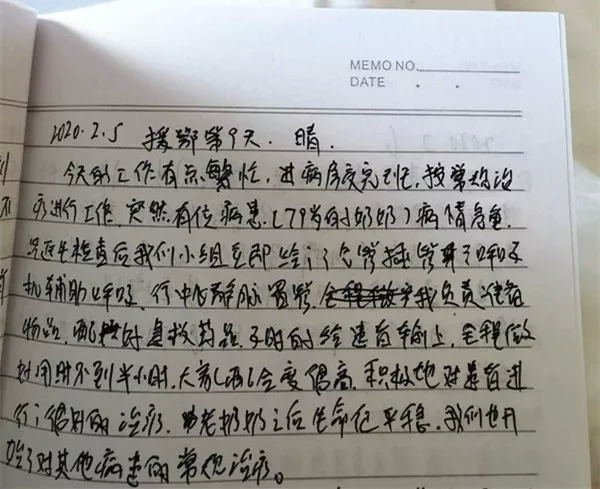 MEMO NO.
DATE . .
2020.2.5 援鄂第9天. 晴.
今天的工作有点繁忙, 进病房交完班, 按常规治
疗进行工作. 突然有位病患 (79岁的奶奶) 病情危重.
医生检查后我们小组立即给予气管插管并予呼吸
机辅助呼吸. 行中心静脉置管. 我负责准备
物品, 配
时急救药品. 及时的给患者输上, 全程做
到用时不到半小时. 大家配合度很高. 积极地对患者进
行了很好的治疗. 老奶奶之后生命征平稳. 我们也开
始了对其他病患的常规治疗。